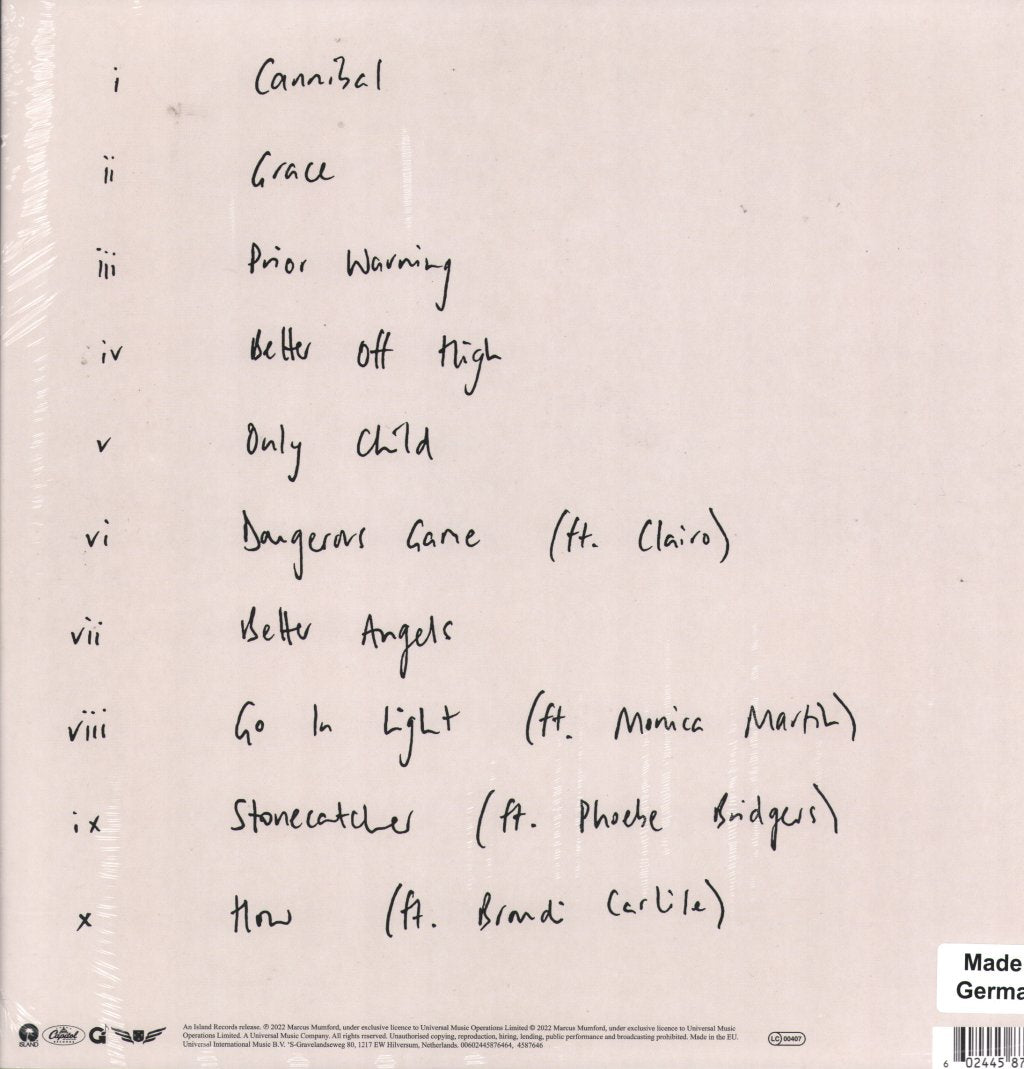 i Cannibal
ii Grace
iii Prior Warning
iv Better Off High
v Only Child
vi Dangerous Game (ft. Clairo)
vii Better Angels
viii Go In Light (ft. Monica Martin)
ix Stonecatcher (ft. Phoebe Bridgers)
x How (ft. Brandi Carlile)
Made
Germa
ISLAND
Capitol
RECORDS
An Island Records release. ℗ 2022 Marcus Mumford, under exclusive licence to Universal Music Operations Limited © 2022 Marcus Mumford, under exclusive licence to Universal Music
Operations Limited. A Universal Music Company. All rights reserved. Unauthorised copying, reproduction, hiring, lending, public performance and broadcasting prohibited. Made in the EU.
Universal International Music B.V. 'S-Gravelandseweg 80, 1217 EW Hilversum, Netherlands. 00602445876464, 4587646
LC 00407
6 02445 87